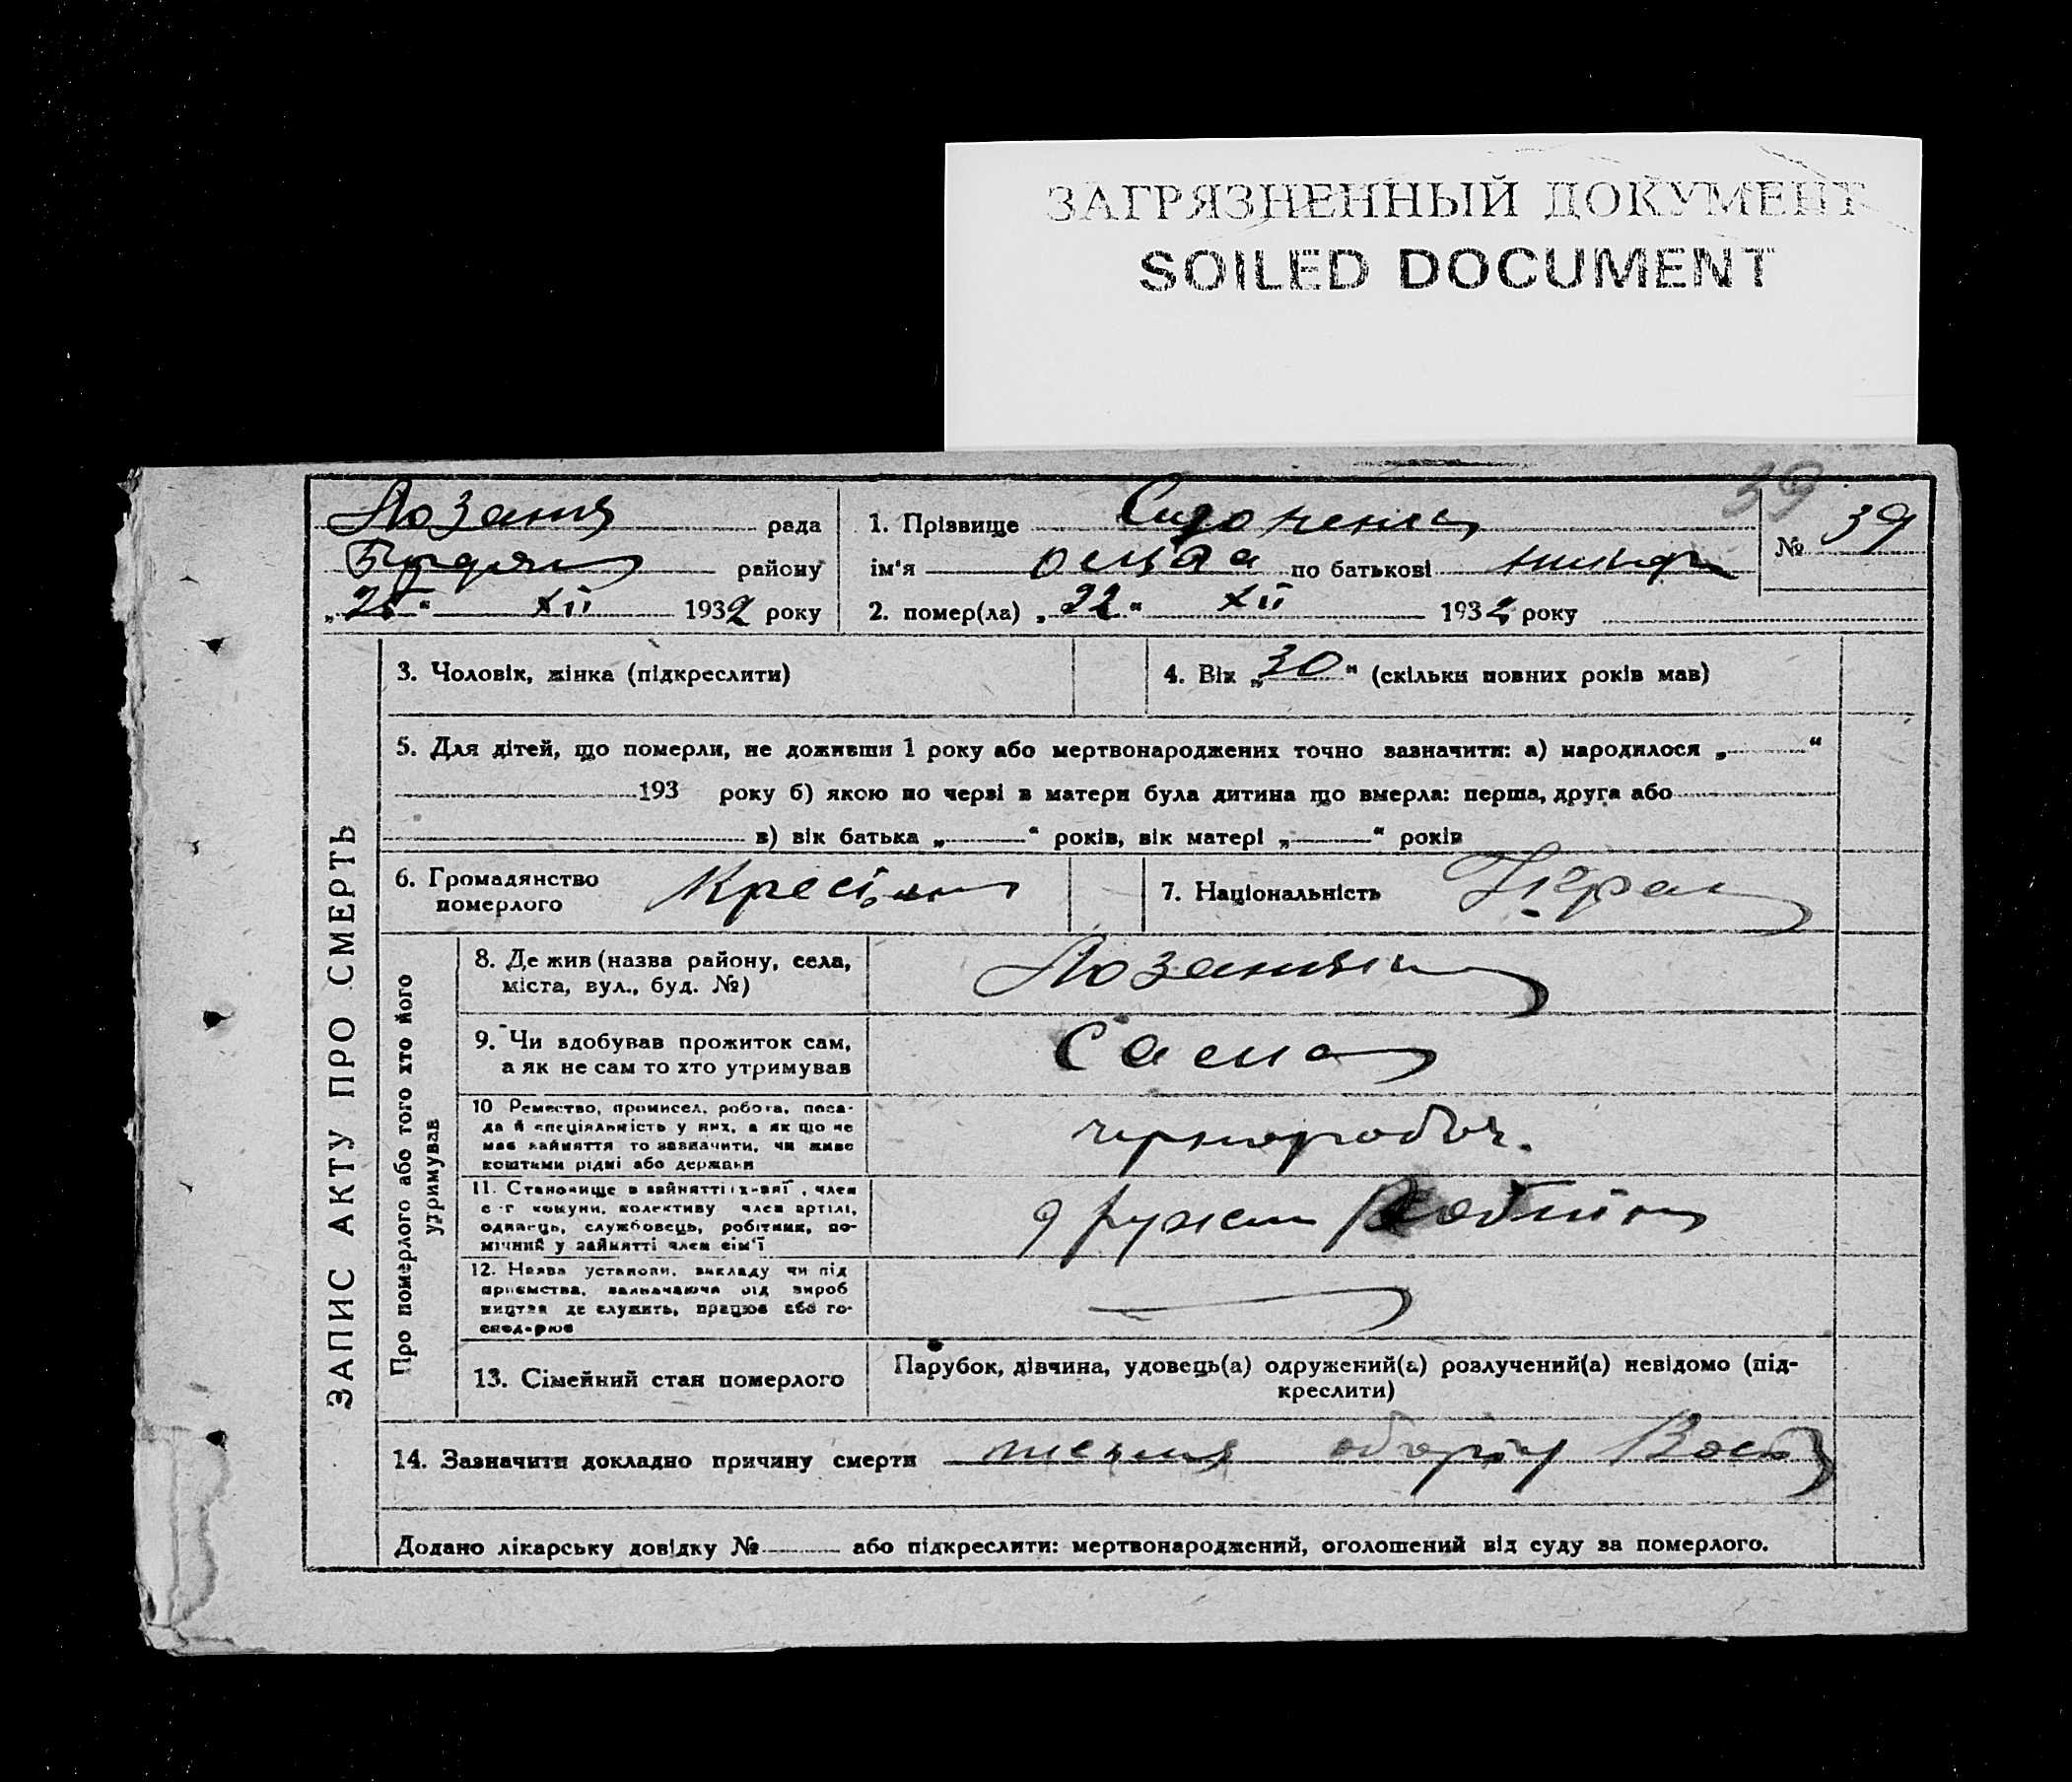 ЗАГРЯЗНЕННЫЙ ДОКУМЕНТ
SOILED DOCUMENT
39
рада
району
„25“ XII 1932 року
1. Прізвище
ім'я по батькові
2. помер(ла) „22“ XII 1932 року
№ 39
ЗАПИС АКТУ ПРО СМЕРТЬ
3. Чоловік, жінка (підкреслити)
4. Вік „30“ (скільки повних років мав)
5. Для дітей, що померли, не доживши 1 року або мертвонароджених точно зазначити: а) народилося „ “
193 року б) якою по черзі в матери була дитина що вмерла: перша, друга або
в) вік батька „ “ років, вік матері „ “ років
6. Громадянство
померлого
7. Національність Укра
Про померлого або того хто його
утримував
8. Де жив (назва району, села,
міста, вул., буд. №)
9. Чи здобував прожиток сам,
а як не сам то хто утримував
Сама
10 Ремество, промисел, робота, поса-
да й спеціяльність у них, а як що не
має зайняття то зазначити, чи живе
коштами рідні або держави
чернороб.
11. Становище в зайнятті , член
с-г комуни, колективу член артілі,
одинець, службовець, робітник, по-
мічний у зайнятті член сім'ї
12. Назва установи, викладу чи під
приємства, зазначаючи від вироб
ництва де служить, працює або го-
сподарює
13. Сімейний стан померлого
Парубок, дівчина, удовець(а) одружений(а) розлучений(а) невідомо (під-
креслити)
14. Зазначити докладно причину смерти
Додано лікарську довідку № або підкреслити: мертвонароджений, оголошений від суду за померлого.